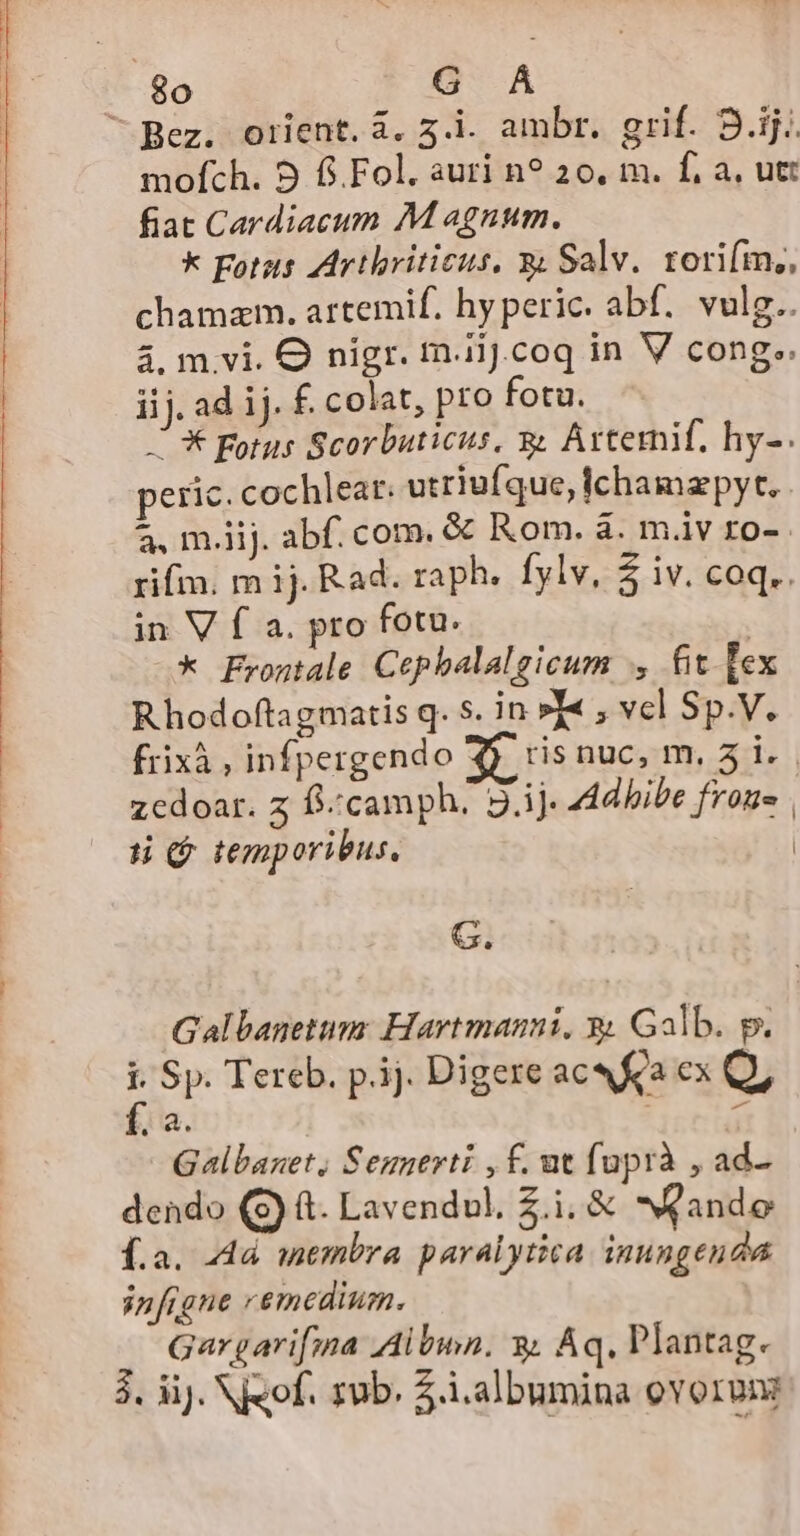 80 G A
Bez. orient. ā. ʒ.i. ambr. griſ. ℈.ij.
moſch. ℈ ß. Fol. auri nº 20. m. ſ. a. ut
fiat Cardiacum Magnum.
* Fotus Arthriticus. ℞ Salv. roriſm.
chamæm. artemiſ. hyperic. abſ. vulg.
ā. m.vi. 🜔 nigr. m.iij. coq in 🜄 cong.
iij. ad ij. f. colat, pro fotu.
* Fotus Scorbuticus. ℞ Artemiſ. hy-
peric. cochlear. utriuſque, ſchamæpyt.
ā. m.iij. abſ. com. & Rom. ā. m.iv ro-
riſm. m ij. Rad. raph. ſylv. ℥ iv. coq.
in 🜄 ſ a. pro fotu.
* Frontale Cephalalgicum, fit ſex
Rhodoſtagmatis q. s. in , vel Sp.V.
frixâ, inſpergendo ris nuc, m. ʒ i.
zedoar. ʒ ß. camph. ℈.ij. Adhibe fron-
ti & temporibus.
G.
Galbanetum Hartmanni. ℞ Galb. p.
i. Sp. Tereb. p.ij. Digere ac a ex
ſ. a.
Galbanet, Sennerti, f. ut ſuprà, ad-
dendo ſt. Lavendul. ℥.i. & ando
ſ.a. Ad membra paralytica inungenda
inſigne remedium.
Gargariſma Album. ℞ Aq. Plantag.
℥. iij. oſ. rub. ℥.i. albumina ovorum